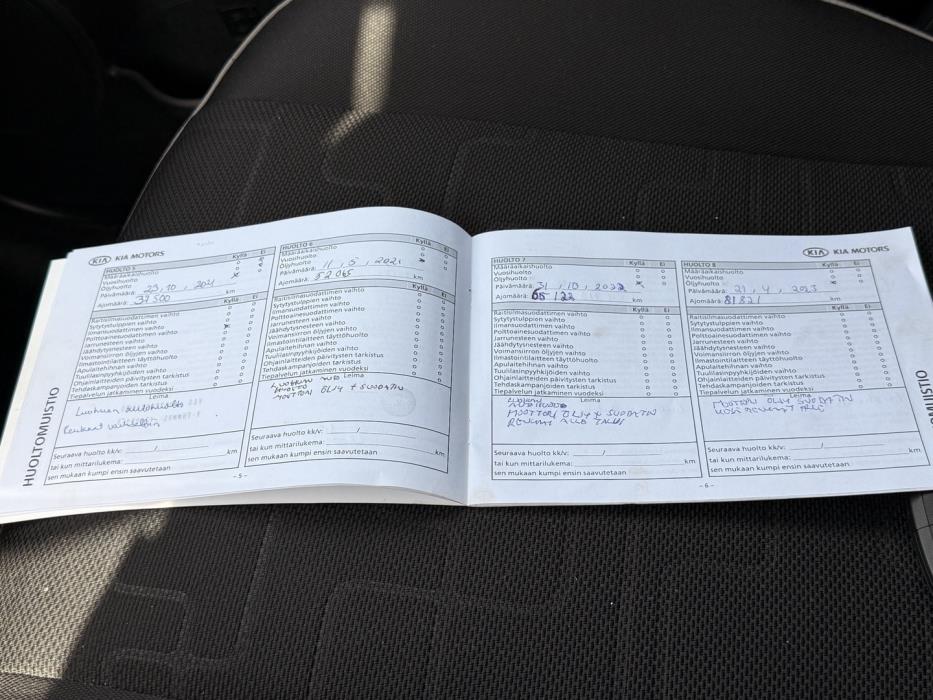 KIA KIA MOTORS
HUOLTO 5
Kyllä Ei
Määräaikaishuolto
Vuosihuolto
Öljyhuolto
Päivämäärä:
Ajomäärä: 37500 km
Kyllä Ei
Raitisilmasuodattimen vaihto
Sytytystulppien vaihto
Ilmansuodattimen vaihto
Polttoainesuodattimen vaihto
Jarrunesteen vaihto
Jäähdytysnesteen vaihto
Voimansiirron öljyjen vaihto
Ilmastointilaitteen täyttöhuolto
Apulaitehihnan vaihto
Tuulilasinpyyhkijöiden vaihto
Ohjainlaitteiden päivitysten tarkistus
Tehdaskampanjoiden tarkistus
Tiepalvelun jatkaminen vuodeksi
Leima
Seuraava huolto kk/v: /
tai kun mittarilukema: km
sen mukaan kumpi ensin saavutetaan
- 5 -
HUOLTOMUISTIO
HUOLTO 6
Kyllä Ei
Määräaikaishuolto
Vuosihuolto
Öljyhuolto
Päivämäärä: 11, 5, 2021
Ajomäärä: 52065 km
Kyllä Ei
Raitisilmasuodattimen vaihto
Sytytystulppien vaihto
Ilmansuodattimen vaihto
Polttoainesuodattimen vaihto
Jarrunesteen vaihto
Jäähdytysnesteen vaihto
Voimansiirron öljyjen vaihto
Ilmastointilaitteen täyttöhuolto
Apulaitehihnan vaihto
Tuulilasinpyyhkijöiden vaihto
Ohjainlaitteiden päivitysten tarkistus
Tehdaskampanjoiden tarkistus
Tiepalvelun jatkaminen vuodeksi
Leima
MOOTTORI ÖLJY + SUODATIN
Seuraava huolto kk/v: /
tai kun mittarilukema: km
sen mukaan kumpi ensin saavutetaan
HUOLTO 7
Kyllä Ei
Määräaikaishuolto
Vuosihuolto
Öljyhuolto
Päivämäärä: 31, 10, 2022
Ajomäärä: 65 122 km
Kyllä Ei
Raitisilmasuodattimen vaihto
Sytytystulppien vaihto
Ilmansuodattimen vaihto
Polttoainesuodattimen vaihto
Jarrunesteen vaihto
Jäähdytysnesteen vaihto
Voimansiirron öljyjen vaihto
Ilmastointilaitteen täyttöhuolto
Apulaitehihnan vaihto
Tuulilasinpyyhkijöiden vaihto
Ohjainlaitteiden päivitysten tarkistus
Tehdaskampanjoiden tarkistus
Tiepalvelun jatkaminen vuodeksi
Leima
MOOTTORI ÖLJY + SUODATIN
RENKAAT ALLE
Seuraava huolto kk/v: /
tai kun mittarilukema: km
sen mukaan kumpi ensin saavutetaan
KIA KIA MOTORS
HUOLTO 8
Kyllä Ei
Määräaikaishuolto
Vuosihuolto
Öljyhuolto
Päivämäärä: 21, 4, 2023
Ajomäärä: 81821 km
Kyllä Ei
Raitisilmasuodattimen vaihto
Sytytystulppien vaihto
Ilmansuodattimen vaihto
Polttoainesuodattimen vaihto
Jarrunesteen vaihto
Jäähdytysnesteen vaihto
Voimansiirron öljyjen vaihto
Ilmastointilaitteen täyttöhuolto
Apulaitehihnan vaihto
Tuulilasinpyyhkijöiden vaihto
Ohjainlaitteiden päivitysten tarkistus
Tehdaskampanjoiden tarkistus
Tiepalvelun jatkaminen vuodeksi
Leima
MOOTTORI ÖLJY SUODATIN
Seuraava huolto kk/v: /
tai kun mittarilukema: km
sen mukaan kumpi ensin saavutetaan
- 6 -